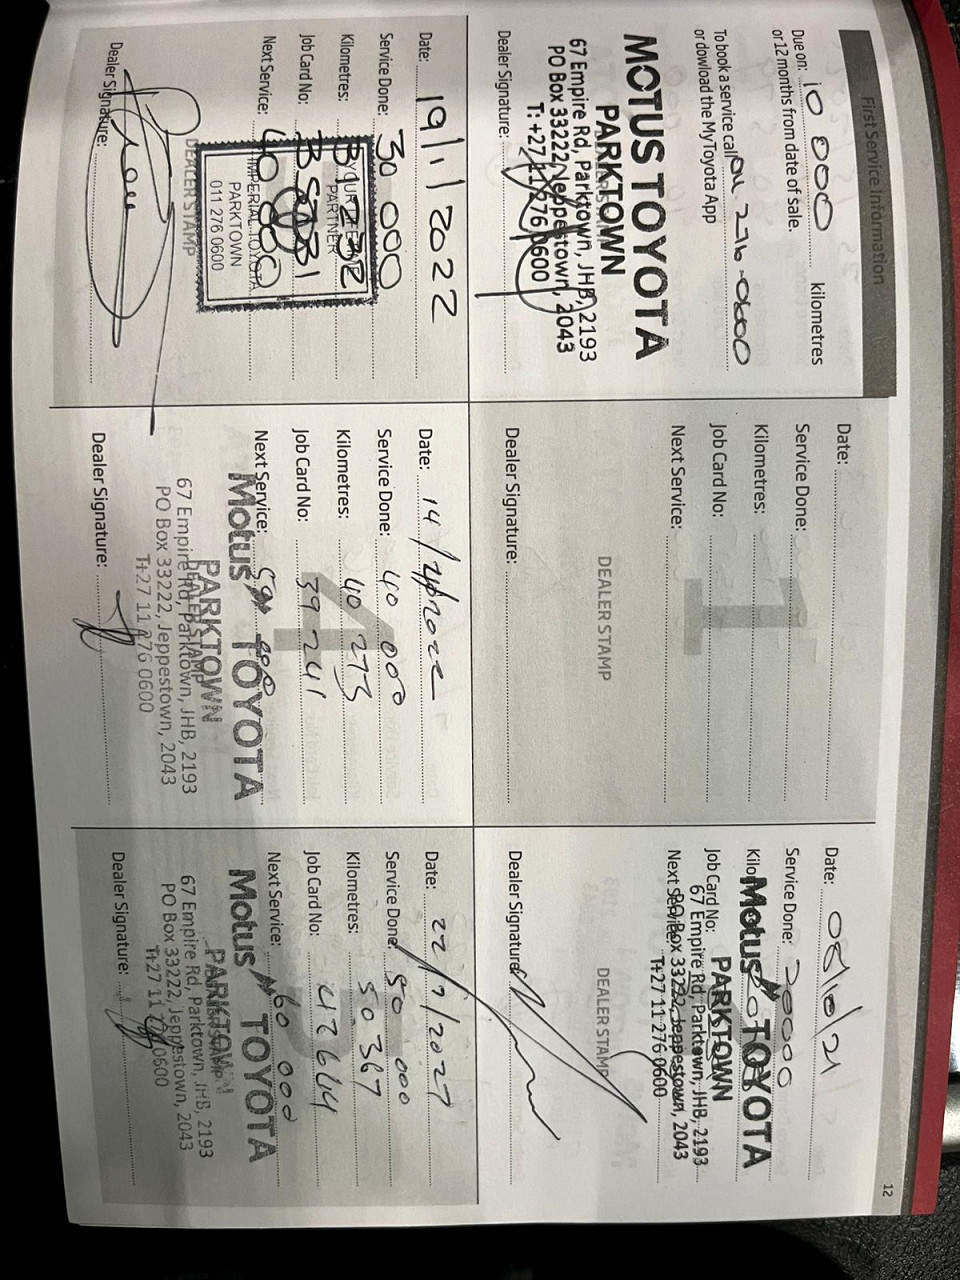 First Service Information
Due on: 10 000 kilometres
or 12 months from date of sale.
To book a service call 011 276-0600
or dowload the MyToyota App
MOTUS TOYOTA
PARKTOWN
67 Empire Rd, Parktown, JHB, 2193
PO Box 33222, Jeppestown, 2043
T: +27 11 276 0600
Dealer Signature:
Date:
Service Done:
Kilometres:
Job Card No:
Next Service:
1
DEALER STAMP
Dealer Signature:
12
Date: 08/10/21
Service Done: 20000
Motus TOYOTA
Job Card No:
PARKTOWN
67 Empire Rd, Parktown, JHB, 2193
Next Service:
PO Box 33222, Jeppestown, 2043
T+27 11 276 0600
DEALER STAMP
Dealer Signature:
Date: 19/1/2022
Service Done: 30 000
Kilometres:
PARTNER
Job Card No:
Next Service:
IMPERIAL TOYOTA
PARKTOWN
011 276 0600
DEALER STAMP
Dealer Signature:
Date: 14/4/2022
Service Done: 40 000
Kilometres: 40 273
4
Job Card No: 39241
Next Service:
Motus TOYOTA
PARKTOWN
67 Empire Rd, Parktown, JHB, 2193
PO Box 33222, Jeppestown, 2043
T+27 11 276 0600
Dealer Signature:
Date:
Service Done: 50 000
Kilometres: 50 367
5
Job Card No:
Next Service: 60 000
Motus TOYOTA
PARKTOWN
67 Empire Rd, Parktown, JHB, 2193
PO Box 33222, Jeppestown, 2043
T+27 11 276 0600
Dealer Signature: